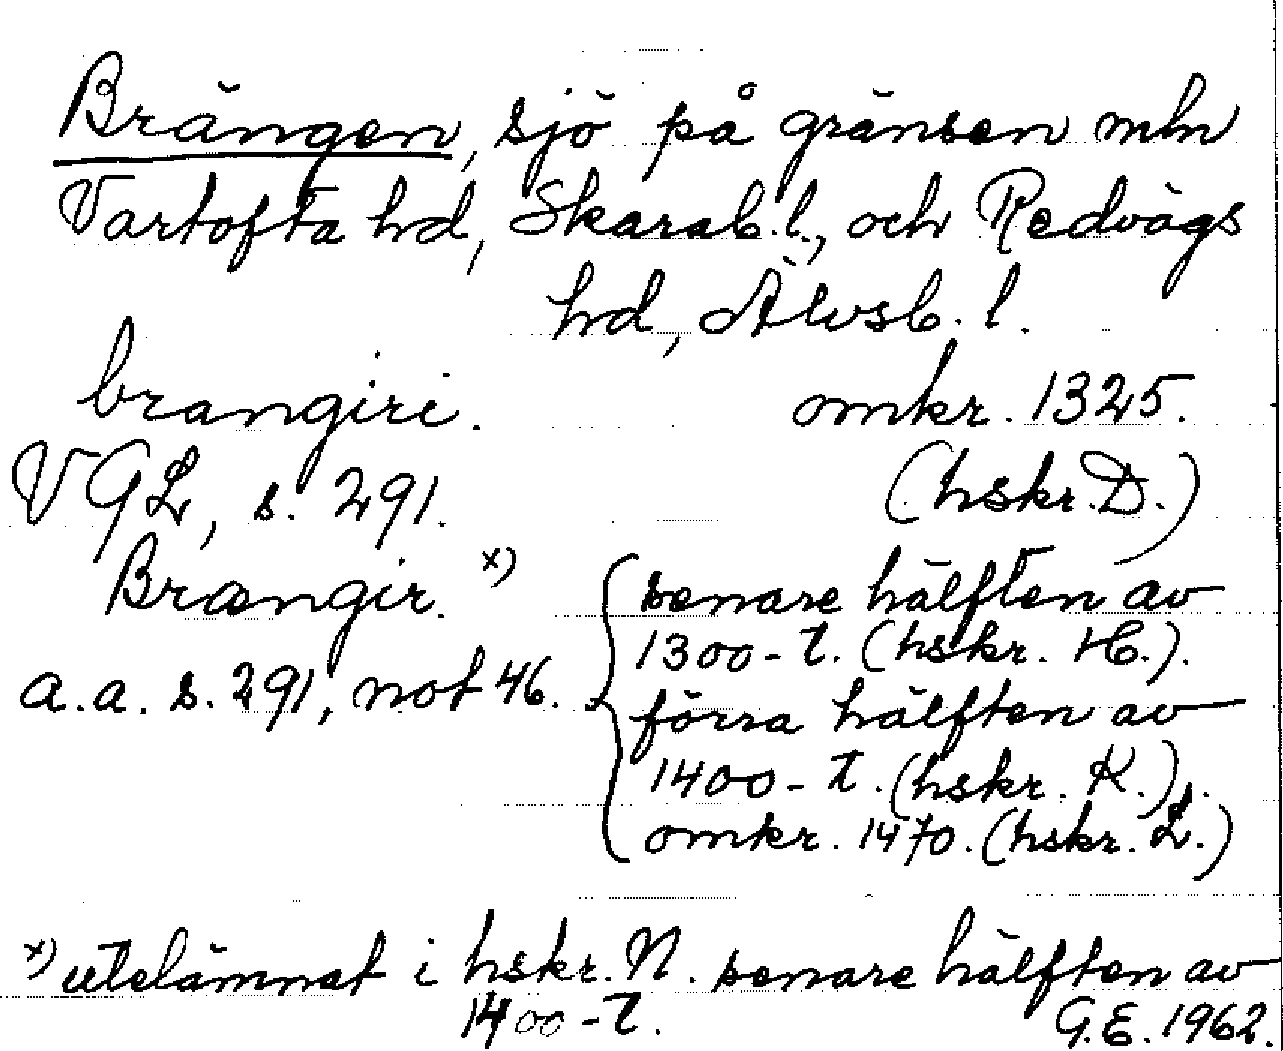 Brängen, sjö på gränsen mln
Vartofta hd, Skarab. l., och Redvägs
hd, Älvsb. l.
brangiri. omkr. 1325.
VGL, s. 291. (hskr. D.)
Brængir. x)
a.a. s. 291, not 46.
senare hälften av
1300-t. (hskr. H.).
förra hälften av
1400-t. (hskr. K.).
omkr. 1470. (hskr. L.)
x) utelämnat i hskr. N. senare hälften av
1400-t. G.E. 1962.